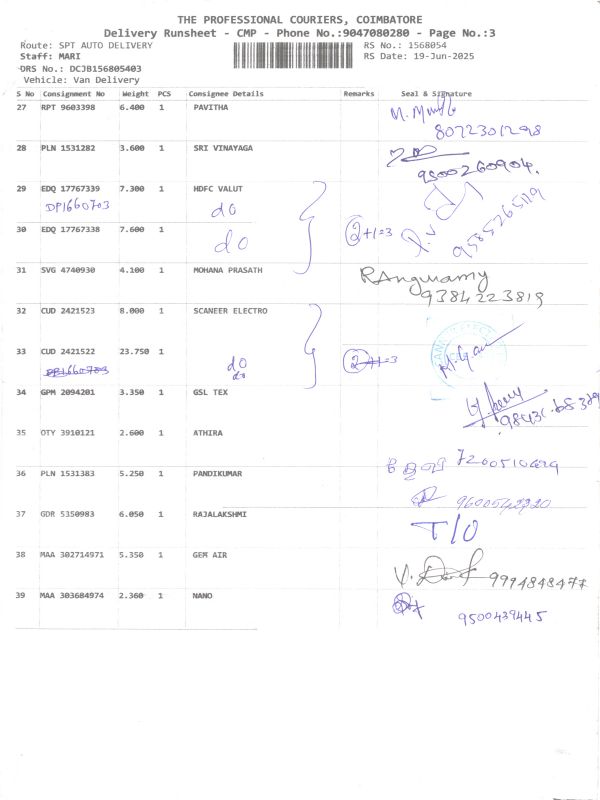 THE PROFESSIONAL COURIERS, COIMBATORE
Delivery Runsheet - CMP - Phone No.:9047080280 - Page No.:3
Route: SPT AUTO DELIVERY RS No.: 1568054
Staff: MARI RS Date: 19-Jun-2025
DRS No.: DCJB156805403
Vehicle: Van Delivery
S No Consignment No Weight PCS Consignee Details Remarks Seal & Signature
27 RPT 9603398 6.400 1 PAVITHA
8072301298
28 PLN 1531282 3.600 1 SRI VINAYAGA
9500260904.
29 EDQ 17767339 7.300 1 HDFC VALUT
DP1660703 do
9585265119
30 EDQ 17767338 7.600 1 do 2+1=3
31 SVG 4740930 4.100 1 MOHANA PRASATH
9384223819
32 CUD 2421523 8.000 1 SCANEER ELECTRO
33 CUD 2421522 23.750 1 do 2+1=3
DP1660703 do
34 GPM 2094201 3.350 1 GSL TEX
35 OTY 3910121 2.600 1 ATHIRA
36 PLN 1531383 5.250 1 PANDIKUMAR
37 GDR 5350983 6.050 1 RAJALAKSHMI T/O
38 MAA 302714971 5.350 1 GEM AIR
9994848477
39 MAA 303684974 2.360 1 NANO
9500439445